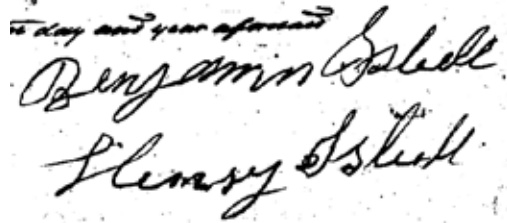 day and year aforesaid
Benjamin Isbell
Henry Isbell